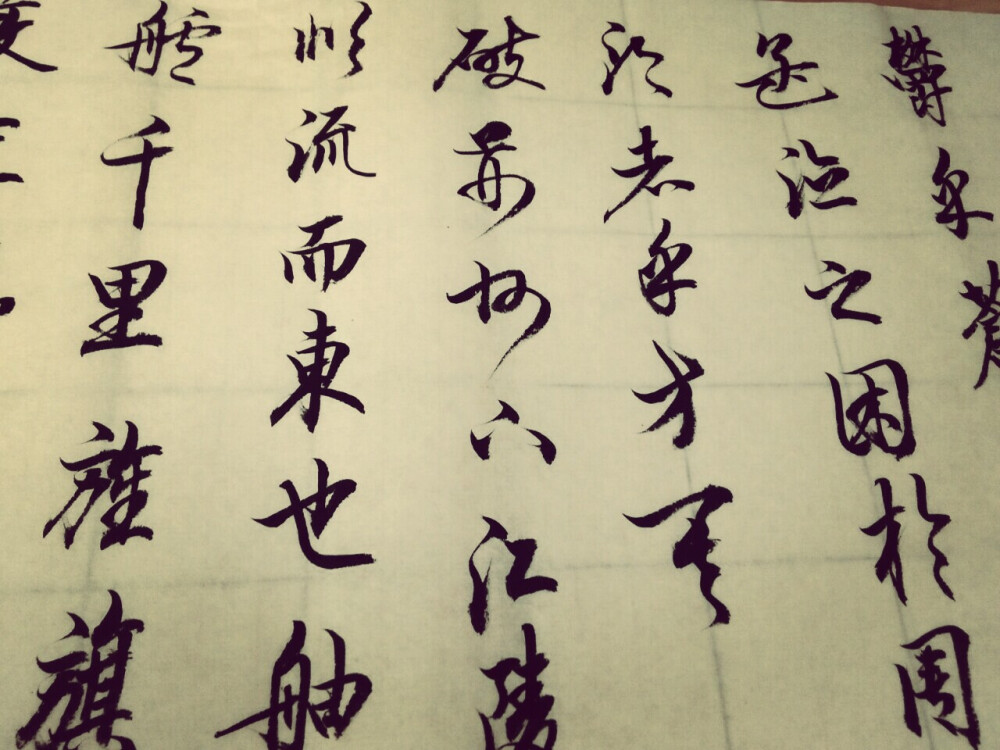 鬱乎蒼
孟德之困於周
郎者乎方其
破荊州下江陵
順流而東也舳
艫千里旌旗